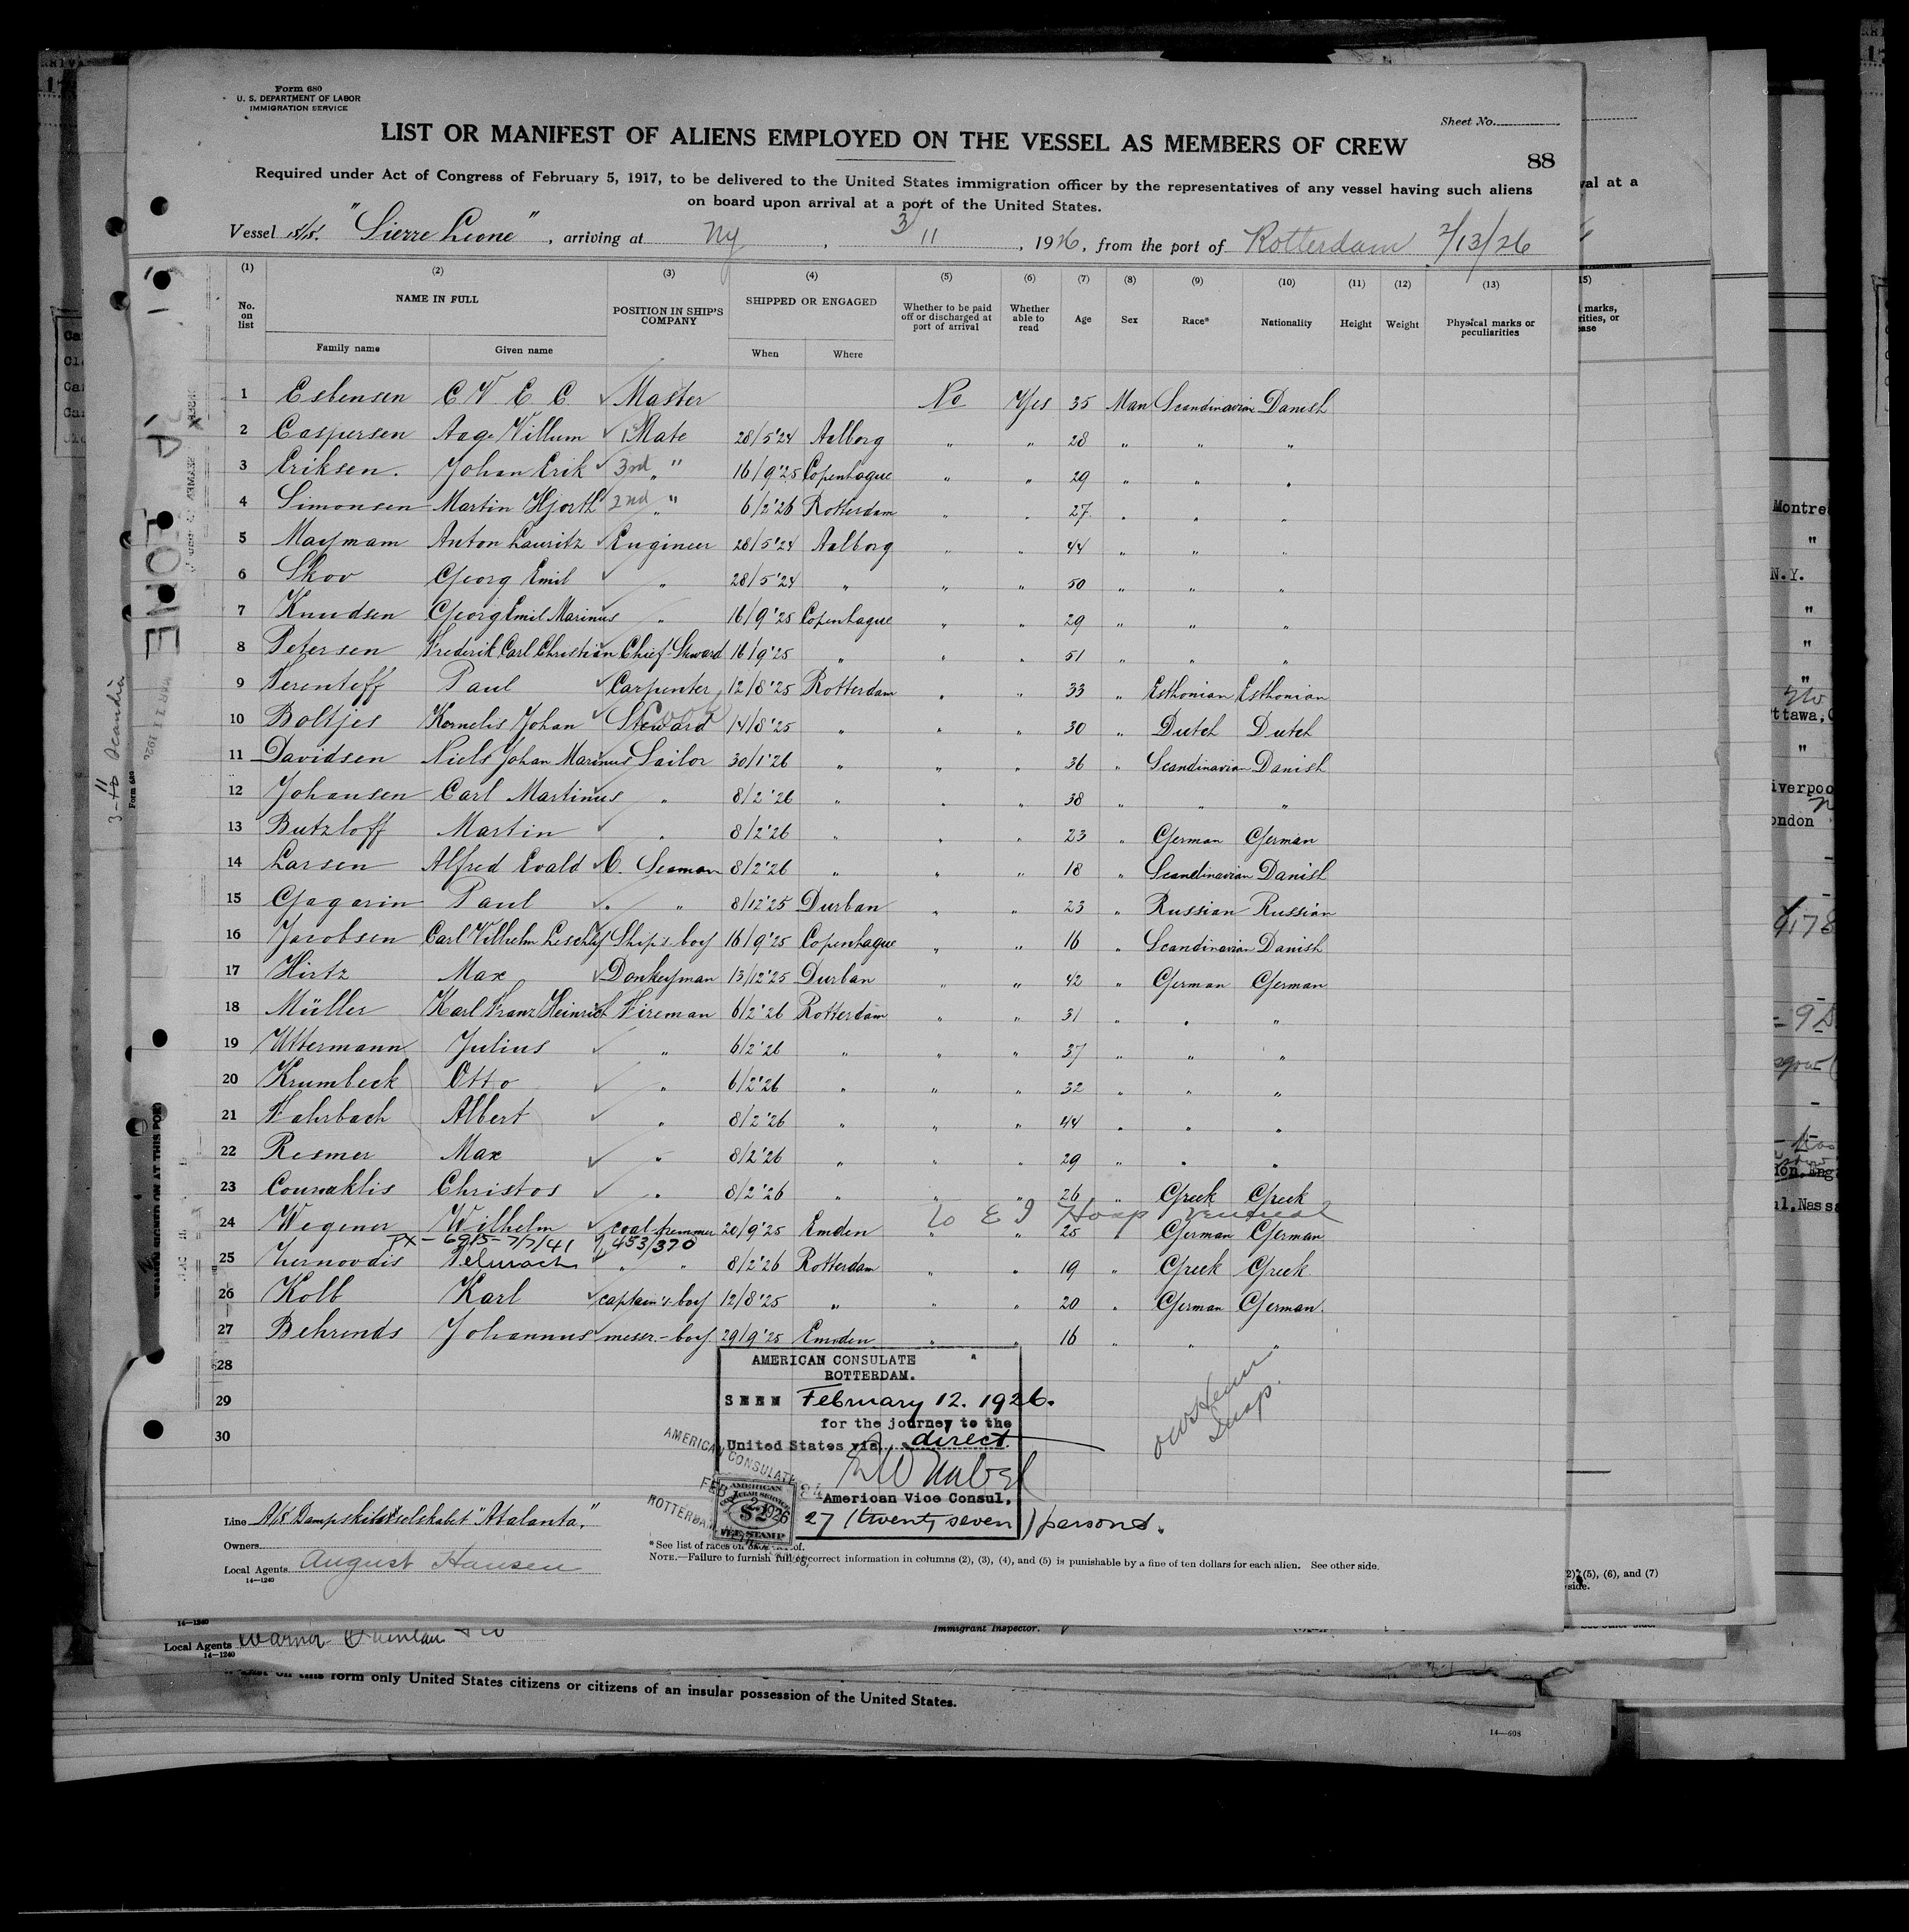 Form 680
U. S. DEPARTMENT OF LABOR
IMMIGRATION SERVICE
Sheet No.
LIST OR MANIFEST OF ALIENS EMPLOYED ON THE VESSEL AS MEMBERS OF CREW
88
Required under Act of Congress of February 5, 1917, to be delivered to the United States immigration officer by the representatives of any vessel having such aliens
on board upon arrival at a port of the United States.
Vessel s/s. "Sierre Leone", arriving at Ny, 3/11, 1926, from the port of Rotterdam 2/13/26
(1) (2) (3) (4) (5) (6) (7) (8) (9) (10) (11) (12) (13)
No. on list NAME IN FULL POSITION IN SHIP'S COMPANY SHIPPED OR ENGAGED Whether to be paid off or discharged at port of arrival Whether able to read Age Sex Race* Nationality Height Weight Physical marks or peculiarities
Family name Given name When Where
1 Esbensen C V E C Master No Yes 35 Man Scandinavian Danish
2 Caspersen Aage Villum 1 Mate 28/5'24 Aalborg " " 28 " " "
3 Eriksen. Johan Erik 3rd " 16/9'25 Copenhague " " 29 " " "
4 Simonsen Martin Hjorth 2nd " 6/2'26 Rotterdam " " 27 " " "
5 Maymam Anton Lauritz Engineer 28/5'24 Aalborg " " 44 " " "
6 Skov Georg Emil " 28/5'24 " " " 50 " " "
7 Knudsen Georg Emil Marinus " 16/9'25 Copenhague " " 29 " " "
8 Petersen Frederik Carl Christian Chief-Steward 16/9'25 " " " 51 " " "
9 Terenteff Paul Carpenter 12/8'25 Rotterdam " " 33 " Esthonian Esthonian
10 Boltjes Kornelis Johan Steward Cook 14/8'25 " " " 30 " Dutch Dutch
11 Davidsen Niels Johan Marinus Sailor 30/1'26 " " " 36 " Scandinavian Danish
12 Johansen Carl Martinus " 8/2'26 " " " 38 " " "
13 Butzloff Martin " 8/2'26 " " " 23 " German German
14 Larsen Alfred Evald O. Seaman 8/2'26 " " " 18 " Scandinavian Danish
15 Gagarin Paul " " 8/12'25 Durban " " 23 " Russian Russian
16 Jacobsen Carl Vilhelm Leschly Ship's boy 16/9'25 Copenhague " " 16 " Scandinavian Danish
17 Hirtz Max Donkeyman 13/12'25 Durban " " 42 " German German
18 Müller Karl Franz Heinrich Fireman 6/2'26 Rotterdam " " 31 " " "
19 Uttermann Julius " 6/2'26 " " " 37 " " "
20 Krumbeck Otto " 6/2'26 " " " 32 " " "
21 Fahrbach Albert " 8/2'26 " " " 44 " " "
22 Resmer Max " 8/2'26 " " " 29 " " "
23 Christos " 8/2'26 " " " 26 " Greek Greek
to E I Hosp
24 Wegener Wilhelm coal tremmer 20/9'25 Emden " " 25 " German German
PX-6915-7/7/41 453/370
25 " " 8/2'26 Rotterdam " " 19 " Greek Greek
26 Kolb Karl captain's-boy 12/8'25 " " " 20 " German German.
27 Behrends Johannus messr.-boy 29/9'25 Emden " " 16 " " "
28
29
30
AMERICAN CONSULATE
ROTTERDAM.
SEEN February 12. 1926.
for the journey to the
United States via direct
American Vice Consul.
27 (twenty seven) persons.
AMERICAN CONSULATE
FEB 12 1926
ROTTERDAM
AMERICAN
CONSULAR SERVICE
$2
FEE STAMP
Insp.
Line A/S Dampskibsselskabet "Atalanta."
Owners
Local Agents August Hansen
14—1240
*See list of races on back hereof.
NOTE.—Failure to furnish full or correct information in columns (2), (3), (4), and (5) is punishable by a fine of ten dollars for each alien. See other side.
(2), (5), (6), and (7)
side.
14—1240
Local Agents
14—1240
Immigrant Inspector.
on this form only United States citizens or citizens of an insular possession of the United States.
14—608
LEONE
MAR 11 1926
Form 680
Montre
"
N.Y.
"
"
"
ttawa,
"
iverpoo
ondon